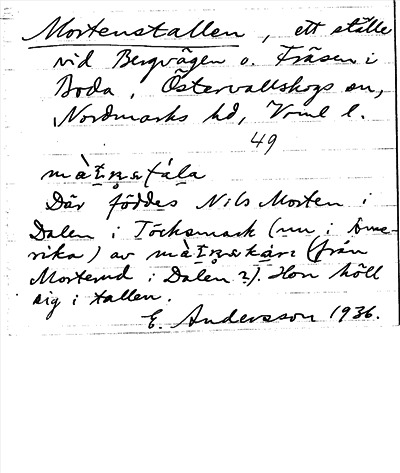 Mortenstallen, ett ställe
vid Bergvägen o. Fräsen i
Boda, Östervallskogs sn,
Nordmarks hd, Vrml l.
49
Där föddes Nils Morten i
Dalen i Töcksmark (nu i Ame-
rika) av (från
Morterud i Dalen?). Hon höll
sig i tallen.
E. Andersson 1936.